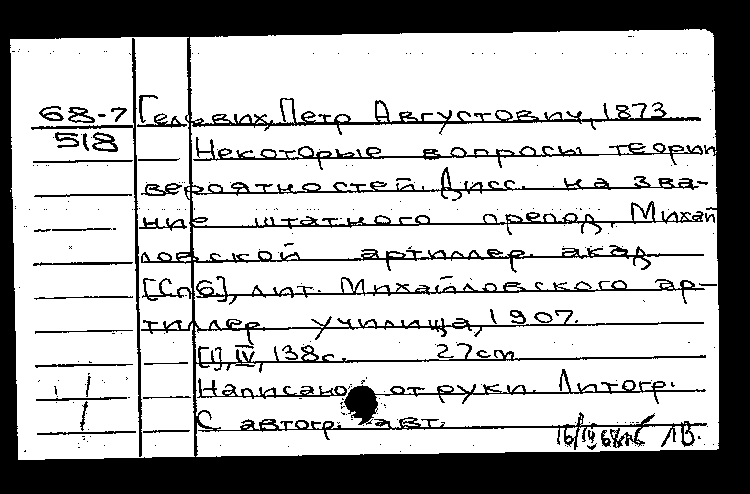 68-7 Гельвих, Петр Августович, 1873
518 Некоторые вопросы теории
вероятностей. Дисс. на зва-
ние штатного препод. Михай
ловской артиллер. акад
[Спб], лит. Михайловского ар-
тиллер. училища, 1907.
[1], IV, 138с. 27cm
Написано от руки. Литогр.
С автогр. авт.
16/IV 68 ЛВ.